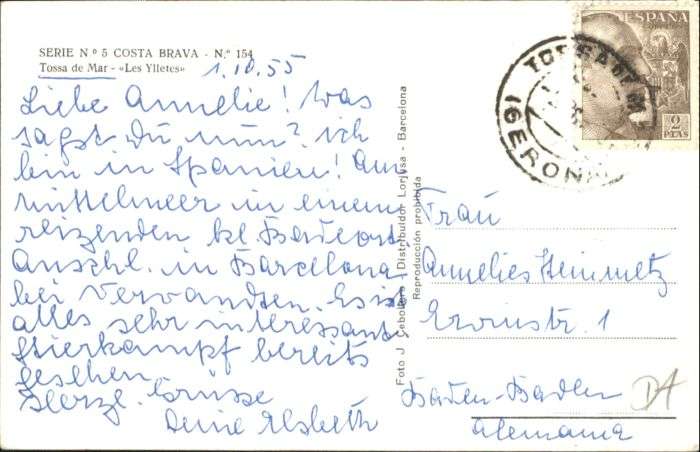 SERIE Nº 5 COSTA BRAVA - N.º 154
Tossa de Mar - «Les Ylletes»
1.10.55
Liebe Annelie! Was
sagst Du nun? ich
bin in Spanien! Am
Mittelmeer in einem
reizenden kl. Badeort,
Anschl. in Barcelona
bei Verwandten. Es ist
alles sehr interessant.
Stierkampf bereits
gesehen.
Herzl. Grüsse
Deine Elsbeth
Foto J. Cebollero - Distribuidor Lorjysa - Barcelona
Reproducción prohibida
ESPAÑA
CORREOS
2
PTAS
TOSSA DE MAR
(GERONA)
Frau
Annelies Steinmetz
Erwinstr. 1
Baden-Baden
Alemania